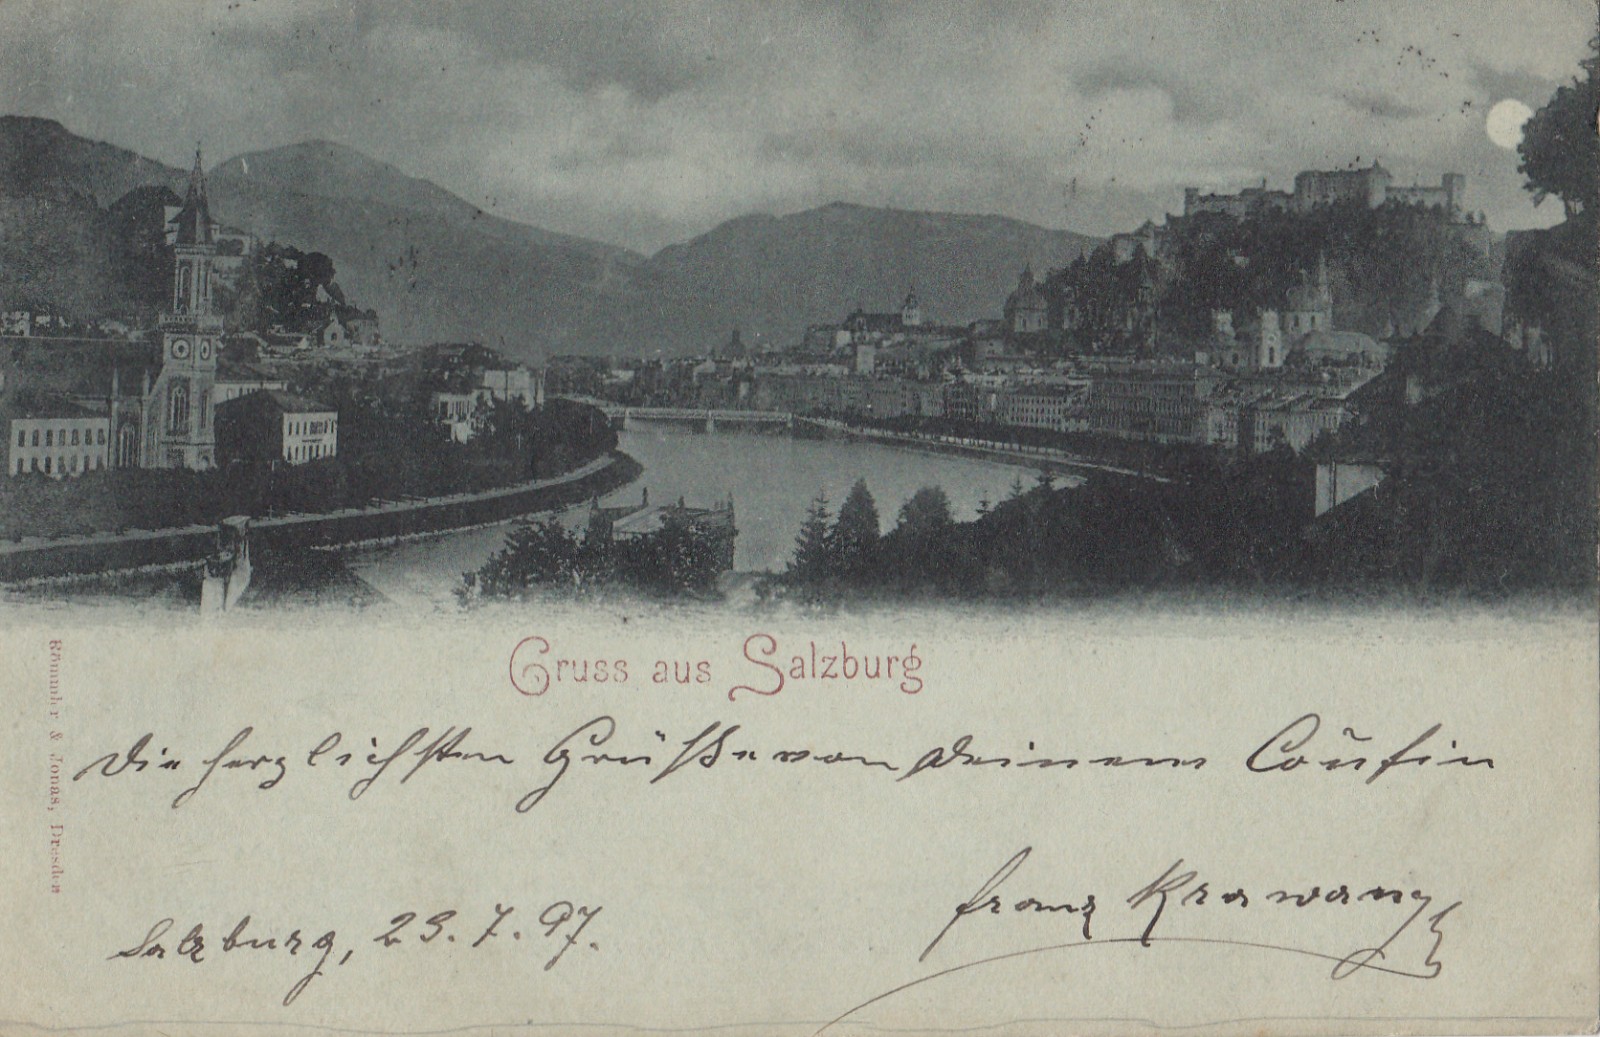 Gruss aus Salzburg
Römmler & Jonas, Dresden
Die herzlichsten Grüße von Deinem Coúsin
Franz
Salzburg, 23. 7. 97.